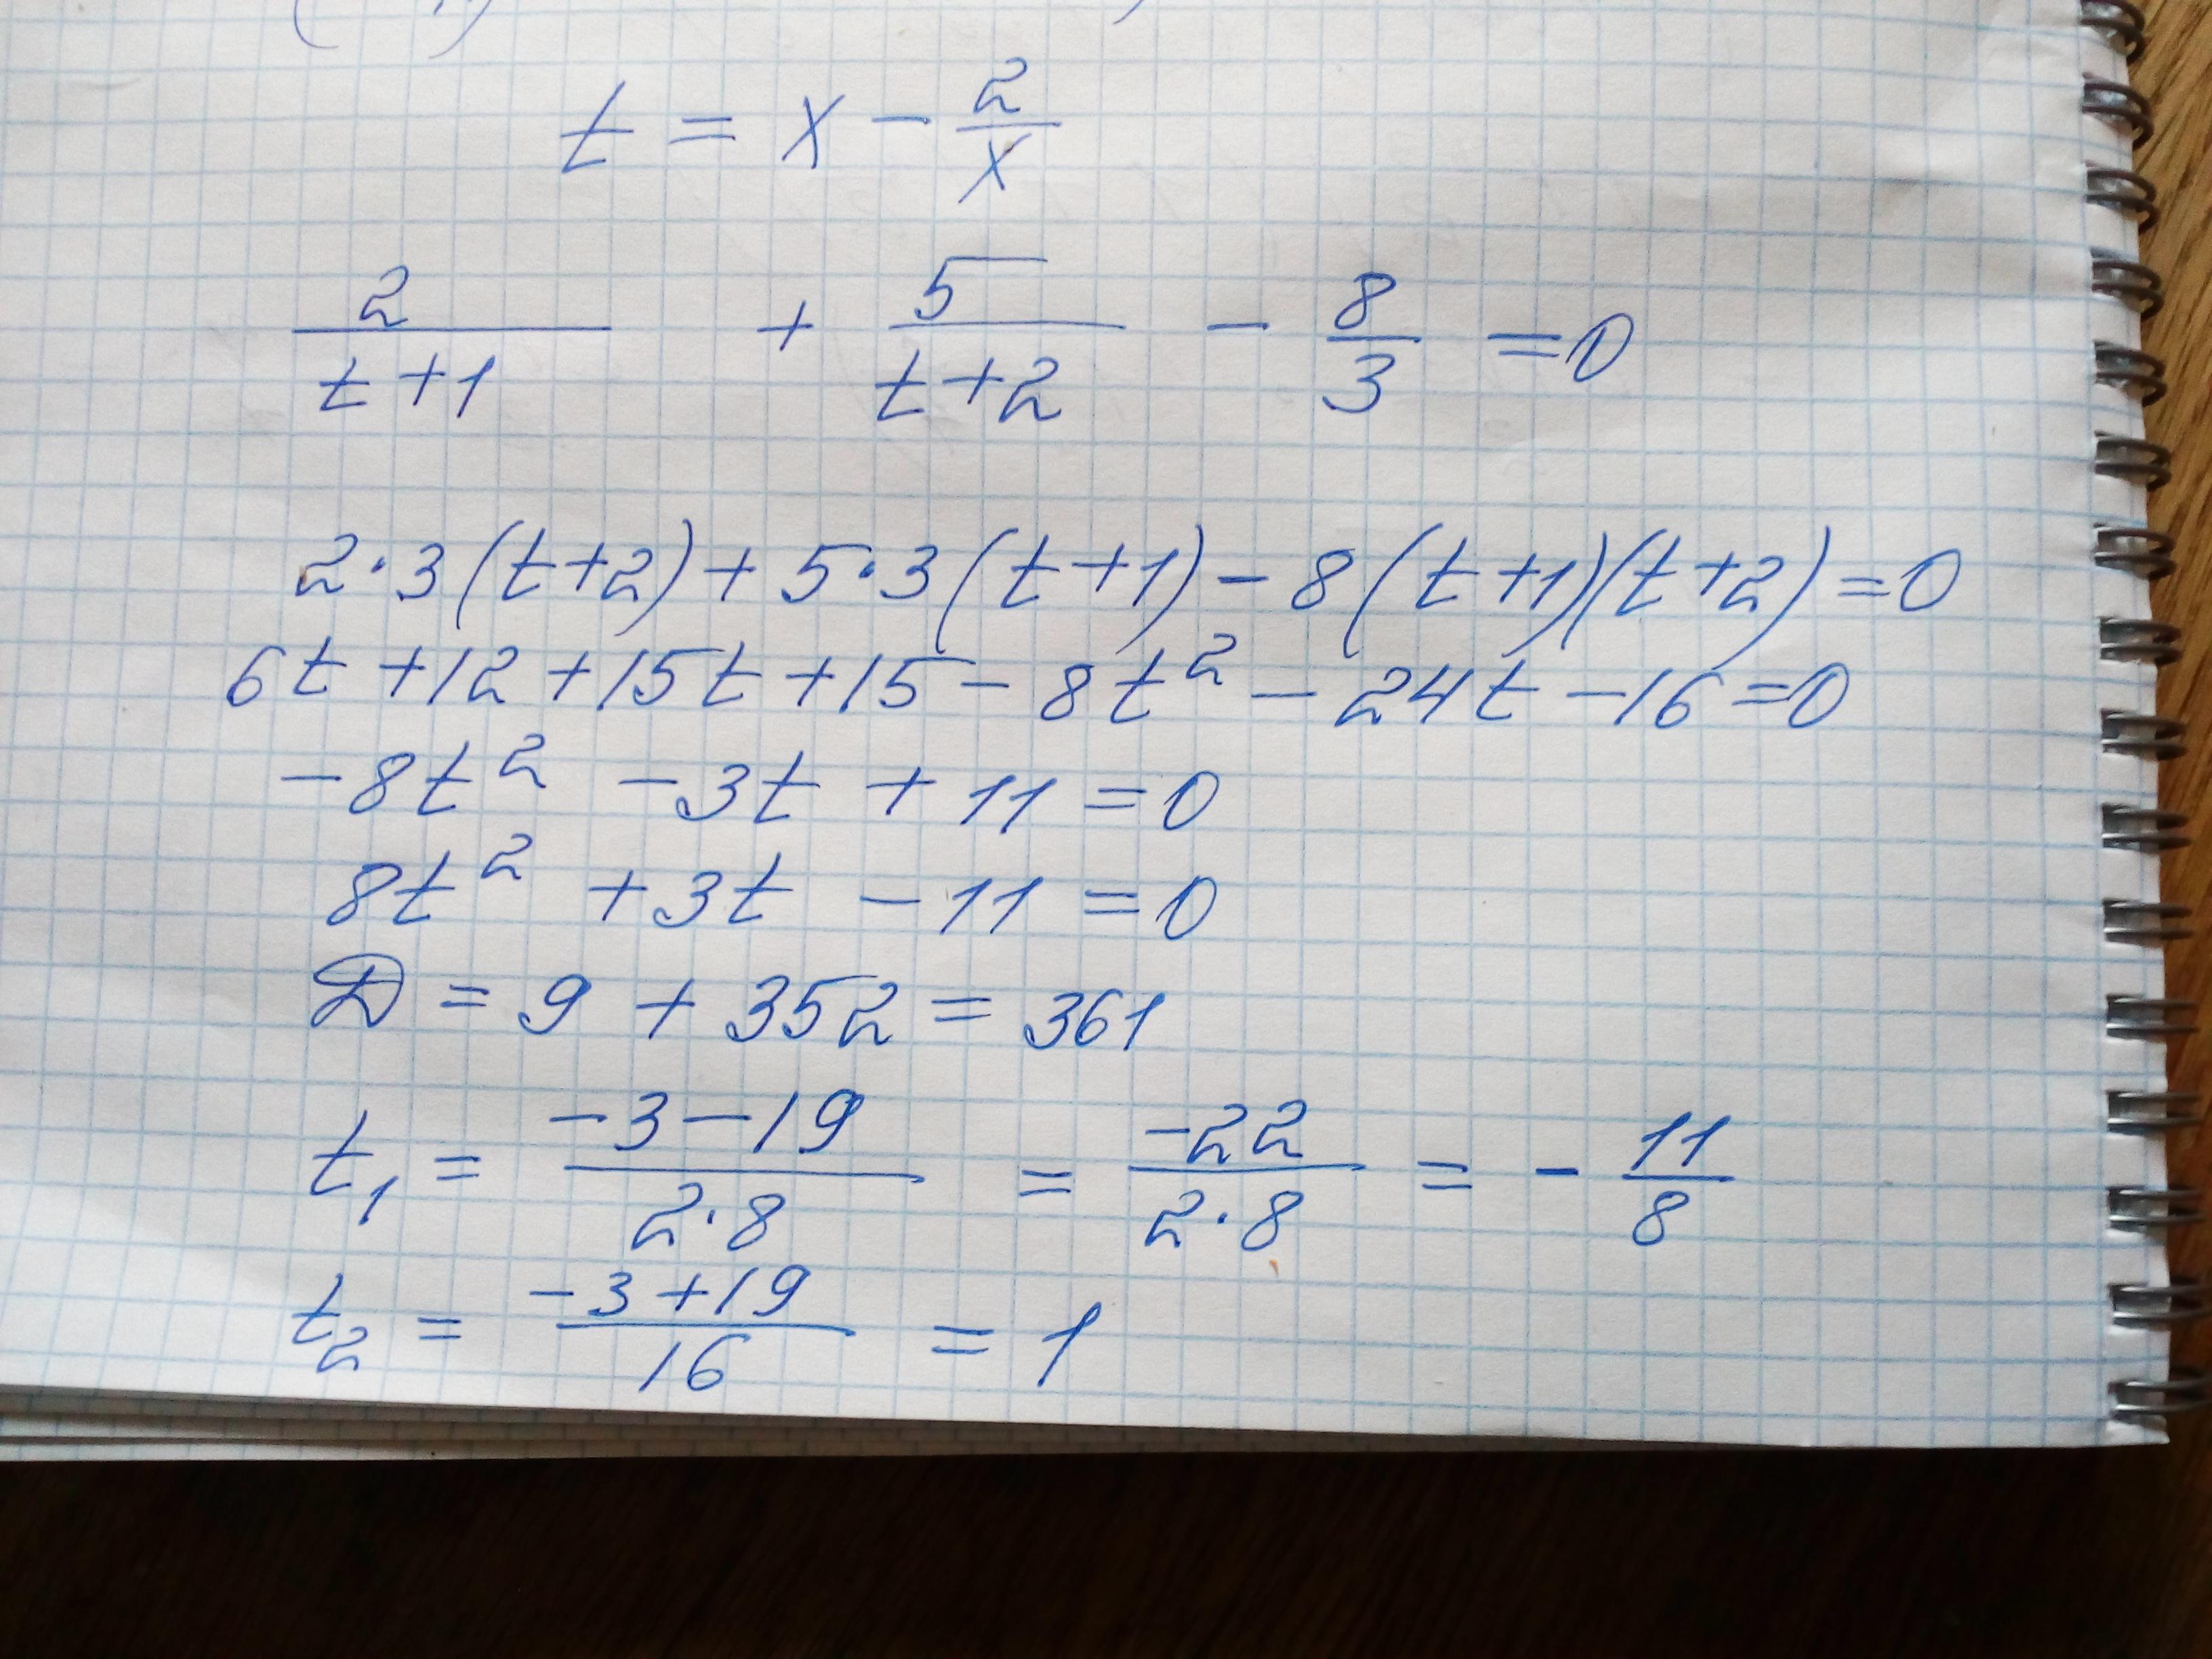 t = x - 2/x
2/(t+1) + 5/(t+2) - 8/3 = 0
2·3(t+2)+5·3(t+1)-8(t+1)(t+2)=0
6t+12+15t+15-8t²-24t-16=0
-8t² -3t +11=0
8t² +3t -11=0
D = 9 + 352 = 361
t₁ = (-3-19)/(2·8) = -22/(2·8) = - 11/8
t₂ = (-3+19)/16 = 1